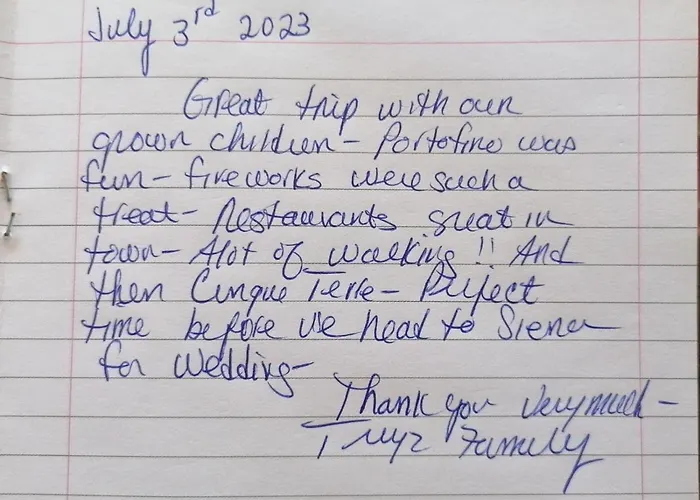 July 3rd 2023
Great trip with our
grown children - Portofino was
fun - fireworks were such a
treat - Restaurants great in
town - Alot of walking !! And
then Cinque Terre - Perfect
time before we head to Siena
for wedding -
Thank you very much -
Family